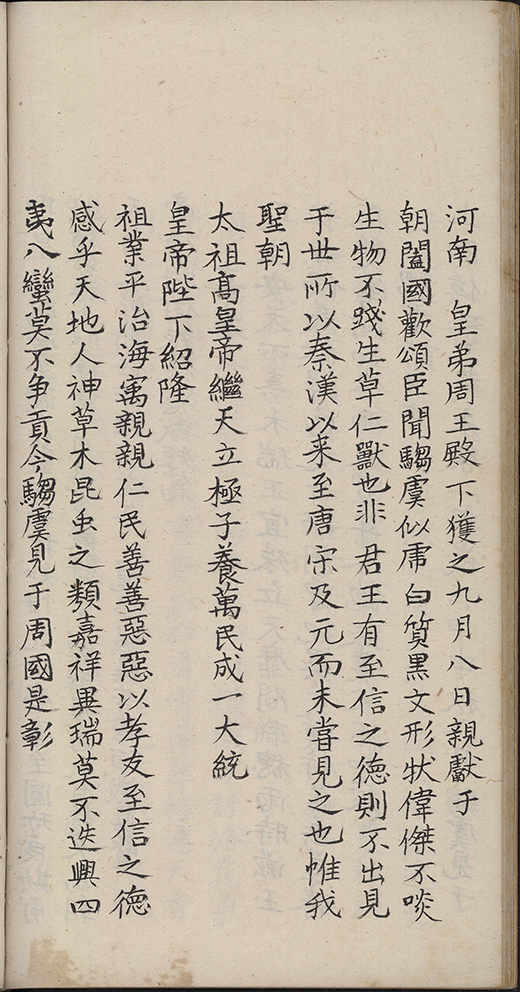 河南　皇弟周王殿下獲之九月八日親獻于
朝闔國歡頌臣聞騶虞似虎白質黑文形狀偉傑不啖
生物不踐生草仁獸也非　君王有至信之德則不出見
于世所以秦漢以来至唐宗及元而未嘗見之也惟我
聖朝
太祖髙皇帝繼天立極子養萬民成一大統
皇帝陛下紹隆
祖業平治海㝢親親仁民善善惡惡以孝友至信之德
感乎天地人神草木昆虫之類嘉祥異瑞莫不迭興四
夷八蠻莫不争貢今騶虞見于周國是彰